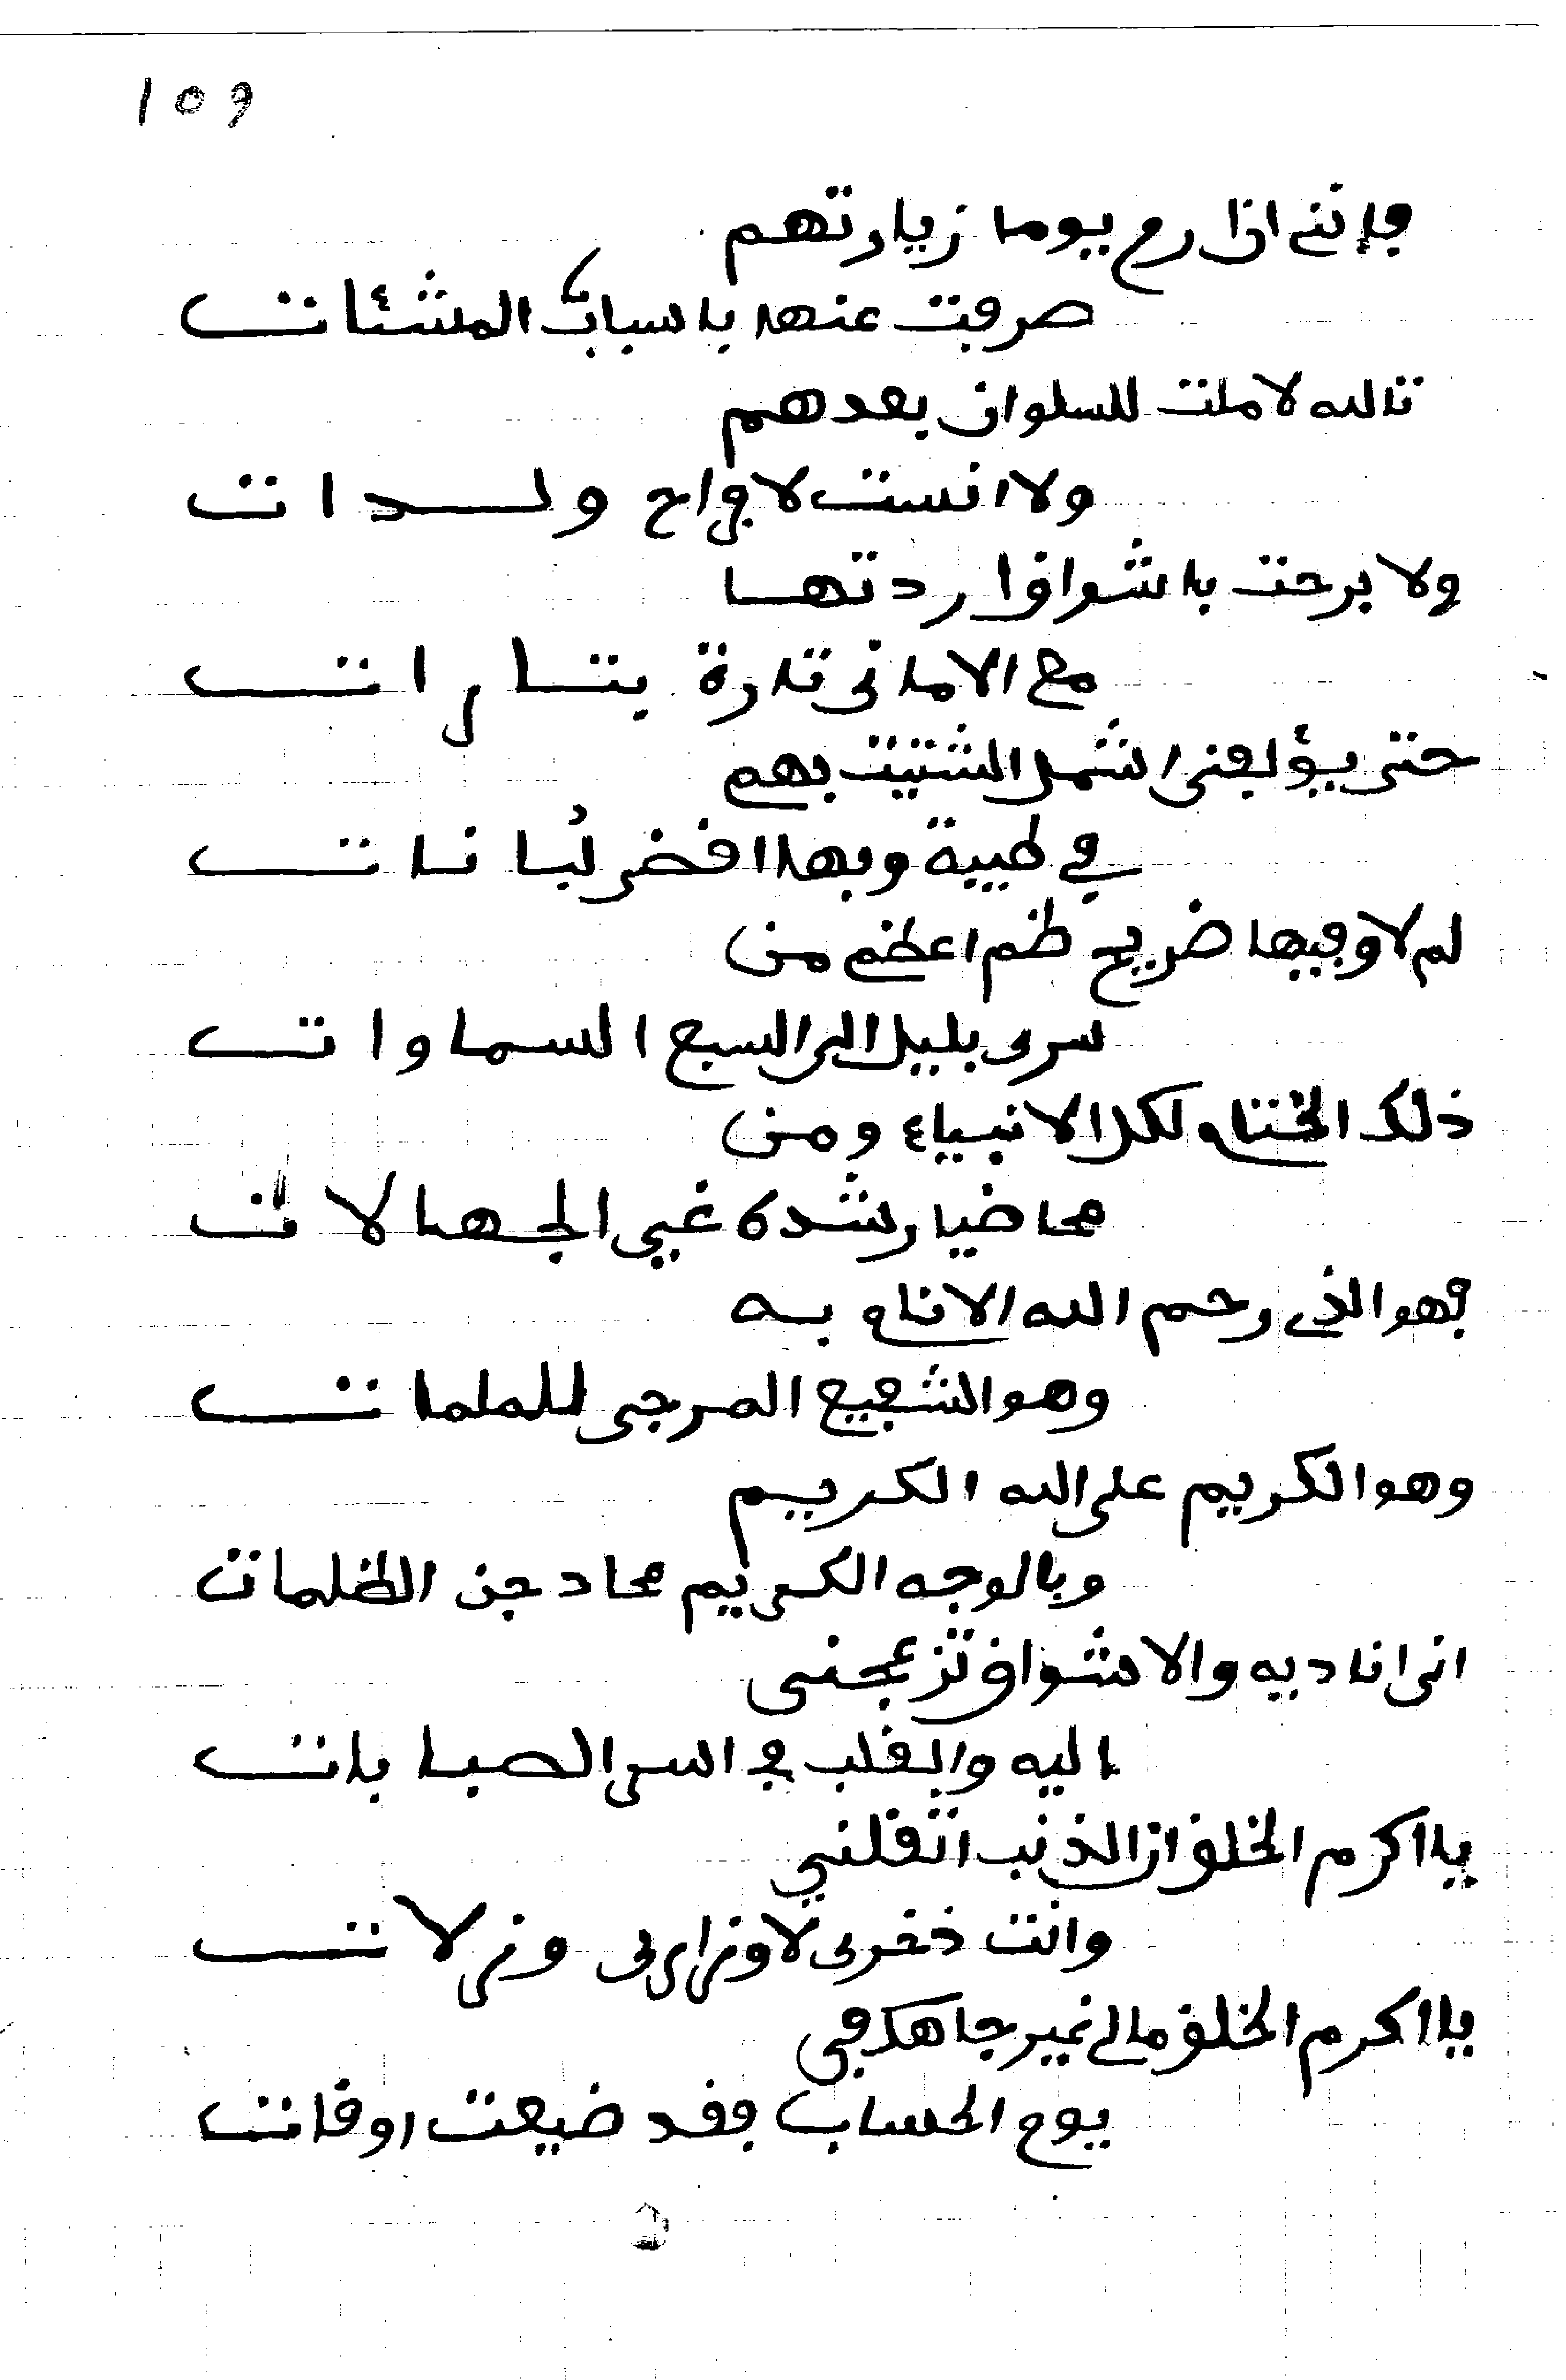 109
فإنني اذا رم يوما زيارتهم
صرفت عنها باسباب المشئات
تالله لا ملت للسلوان بعدهم
ولا انست لافراح ولدات
ولا برحت باشواق ارددتها
مع الامانى تارة بتارات
حتى يؤلفنى اشمل الشتيت بهم
في طيبة وبها اقضى لبانات
لم لا وفيها ضريح ضم اعظم من
سرى بليل الى السبع السماوات
ذلك الختام لكل الانبياء ومن
محا ضيا رشده غي الجهالات
فهو الذي رحم الله الانام به
وهو الشفيع المرجى للملمات
وهو الكريم على الله الكريم
وبالوجه الكريم محا دجن الظلمات
انى اناديه والاشواق تزعجنى
اليه والقلب في اسر الصبابات
يا اكرم الخلق ان الذنب اثقلني
وانت ذخرى لاوزارى وزلات
يا اكرم الخلق مالي غير جاهك في
يوم الحساب فقد ضيعت اوقات